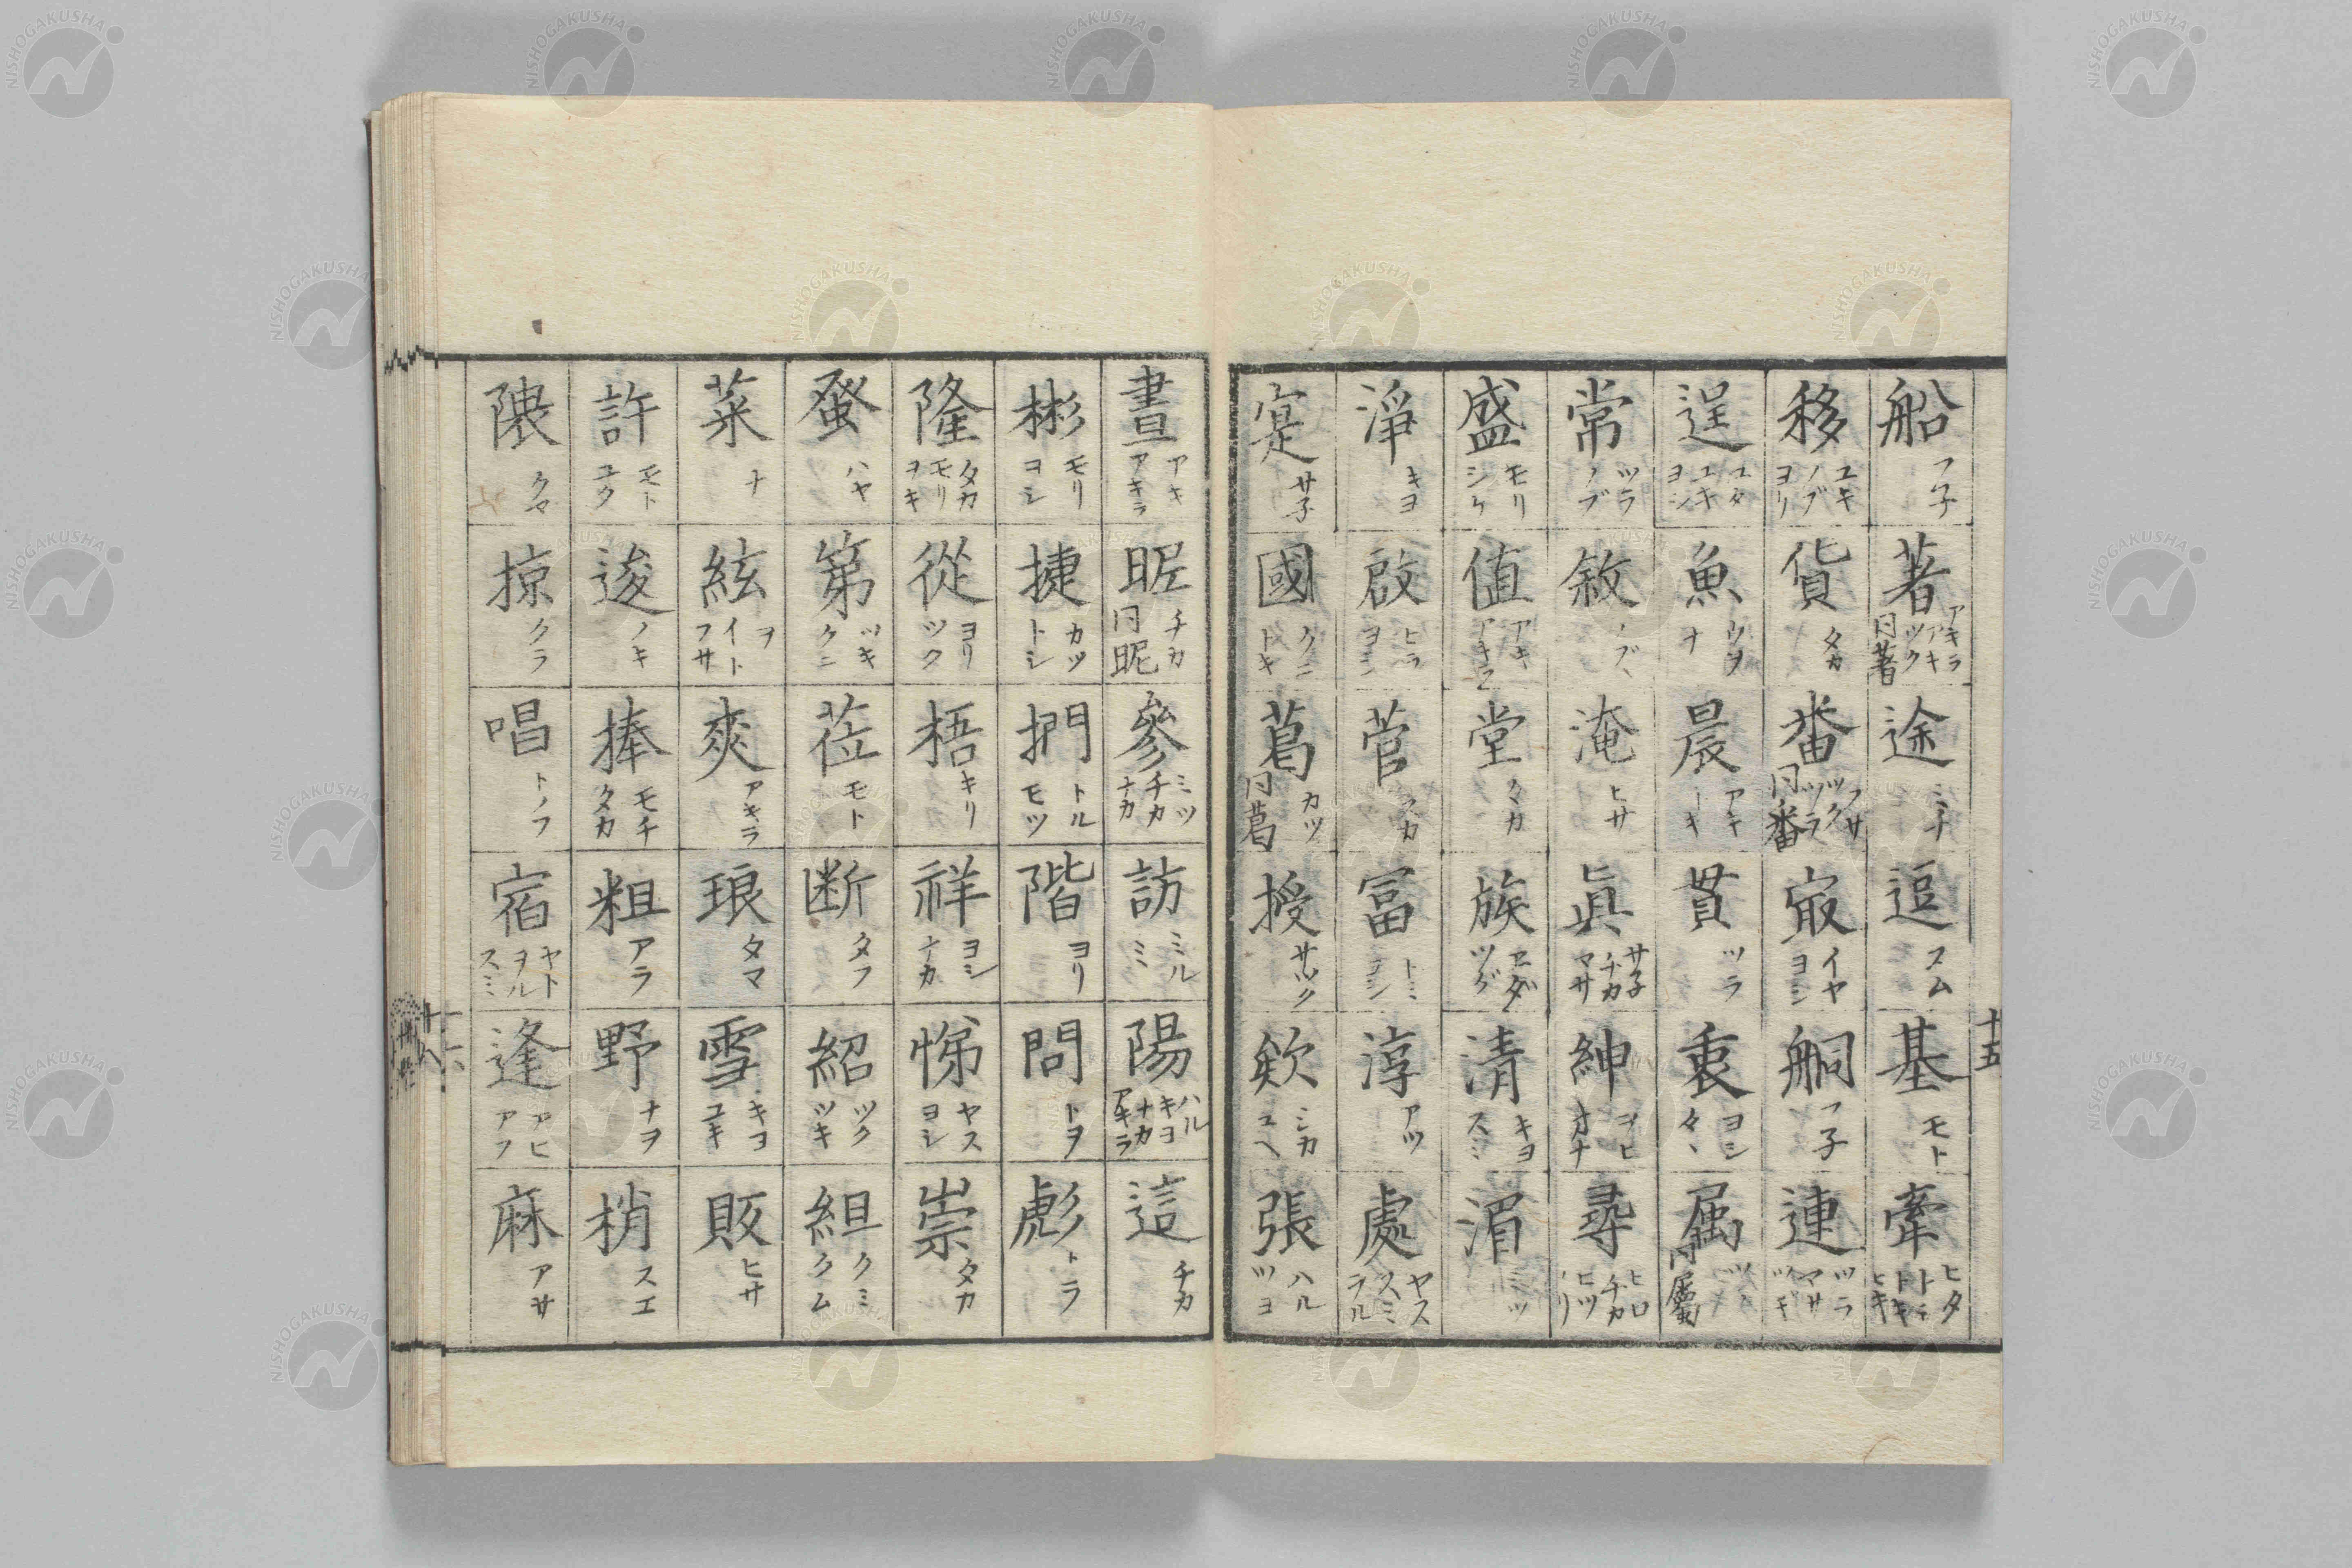 船 フ子
著 アキラ アキ ツク 同著
途 ミチ
逗 スム
基 モト
牽 ヒタ トキ ヒキ
移 ユキ ノブ ヨリ
貨 タカ
畨 フサ ツク ツラ 同番
㝡 イヤ ヨシ
舸 フ子
連 ツラ マサ ツギ
逞 ユタ ユキ ヨシ
魚 ウヲ ナ
晨 アキ
貫 ツラ
衷 ヨシ
属 同屬
常 ツラ ノブ
敘 ノブ
淹 ヒサ
眞 サ子 チカ マサ
紳 ヲヒ
尋 ヒロ チカ ヒツ ノリ
盛 モリ シケ
値 アキ アキラ
堂 タカ
族 ヱダ ツグ
清 キヨ スミ
湄 ミツ
淨 キヨ
啟 ヒラ ヨシ
菅 スガ
冨 トミ ヨシ
淳 アツ
處 ヤス スミ ラル
寔 サ子
國 クニ トキ
葛 カツ 同葛
授 サヅク
欸
張 ハル ツヨ
十五
晝 アキ アキラ
昵 チカ 同昵
參 ミツ チカ ナカ
訪 ミル ミ
陽 ハル キヨ ナカ アキラ
這 チカ
彬 モリ ヨシ
捷 カツ トシ
捫 トル モツ
階 ヨリ
問 トヲ
彪 トラ
隆 タカ モリ ヲキ
從 ヨリ ツク
梧 キリ
祥 ヨシ ナカ
悌 ヤス ヨシ
崇 タカ
發 ハヤ
第 ツキ クニ
莅 モト
断 タフ
紹 ツク ツキ
組 クミ クム
菜 ナ
絃 ヲ イト フサ
爽 アキラ
琅 タマ
雪 キヨ ユキ
販 ヒサ
許 モト ユク
逡 ノキ
捧 モチ タカ
粗 アラ
野 ナヲ
梢 スエ
隈 クマ
掠 クラ
唱 トノフ
宿 ヤト ヲル スミ
逢 アヒ アフ
麻 アサ